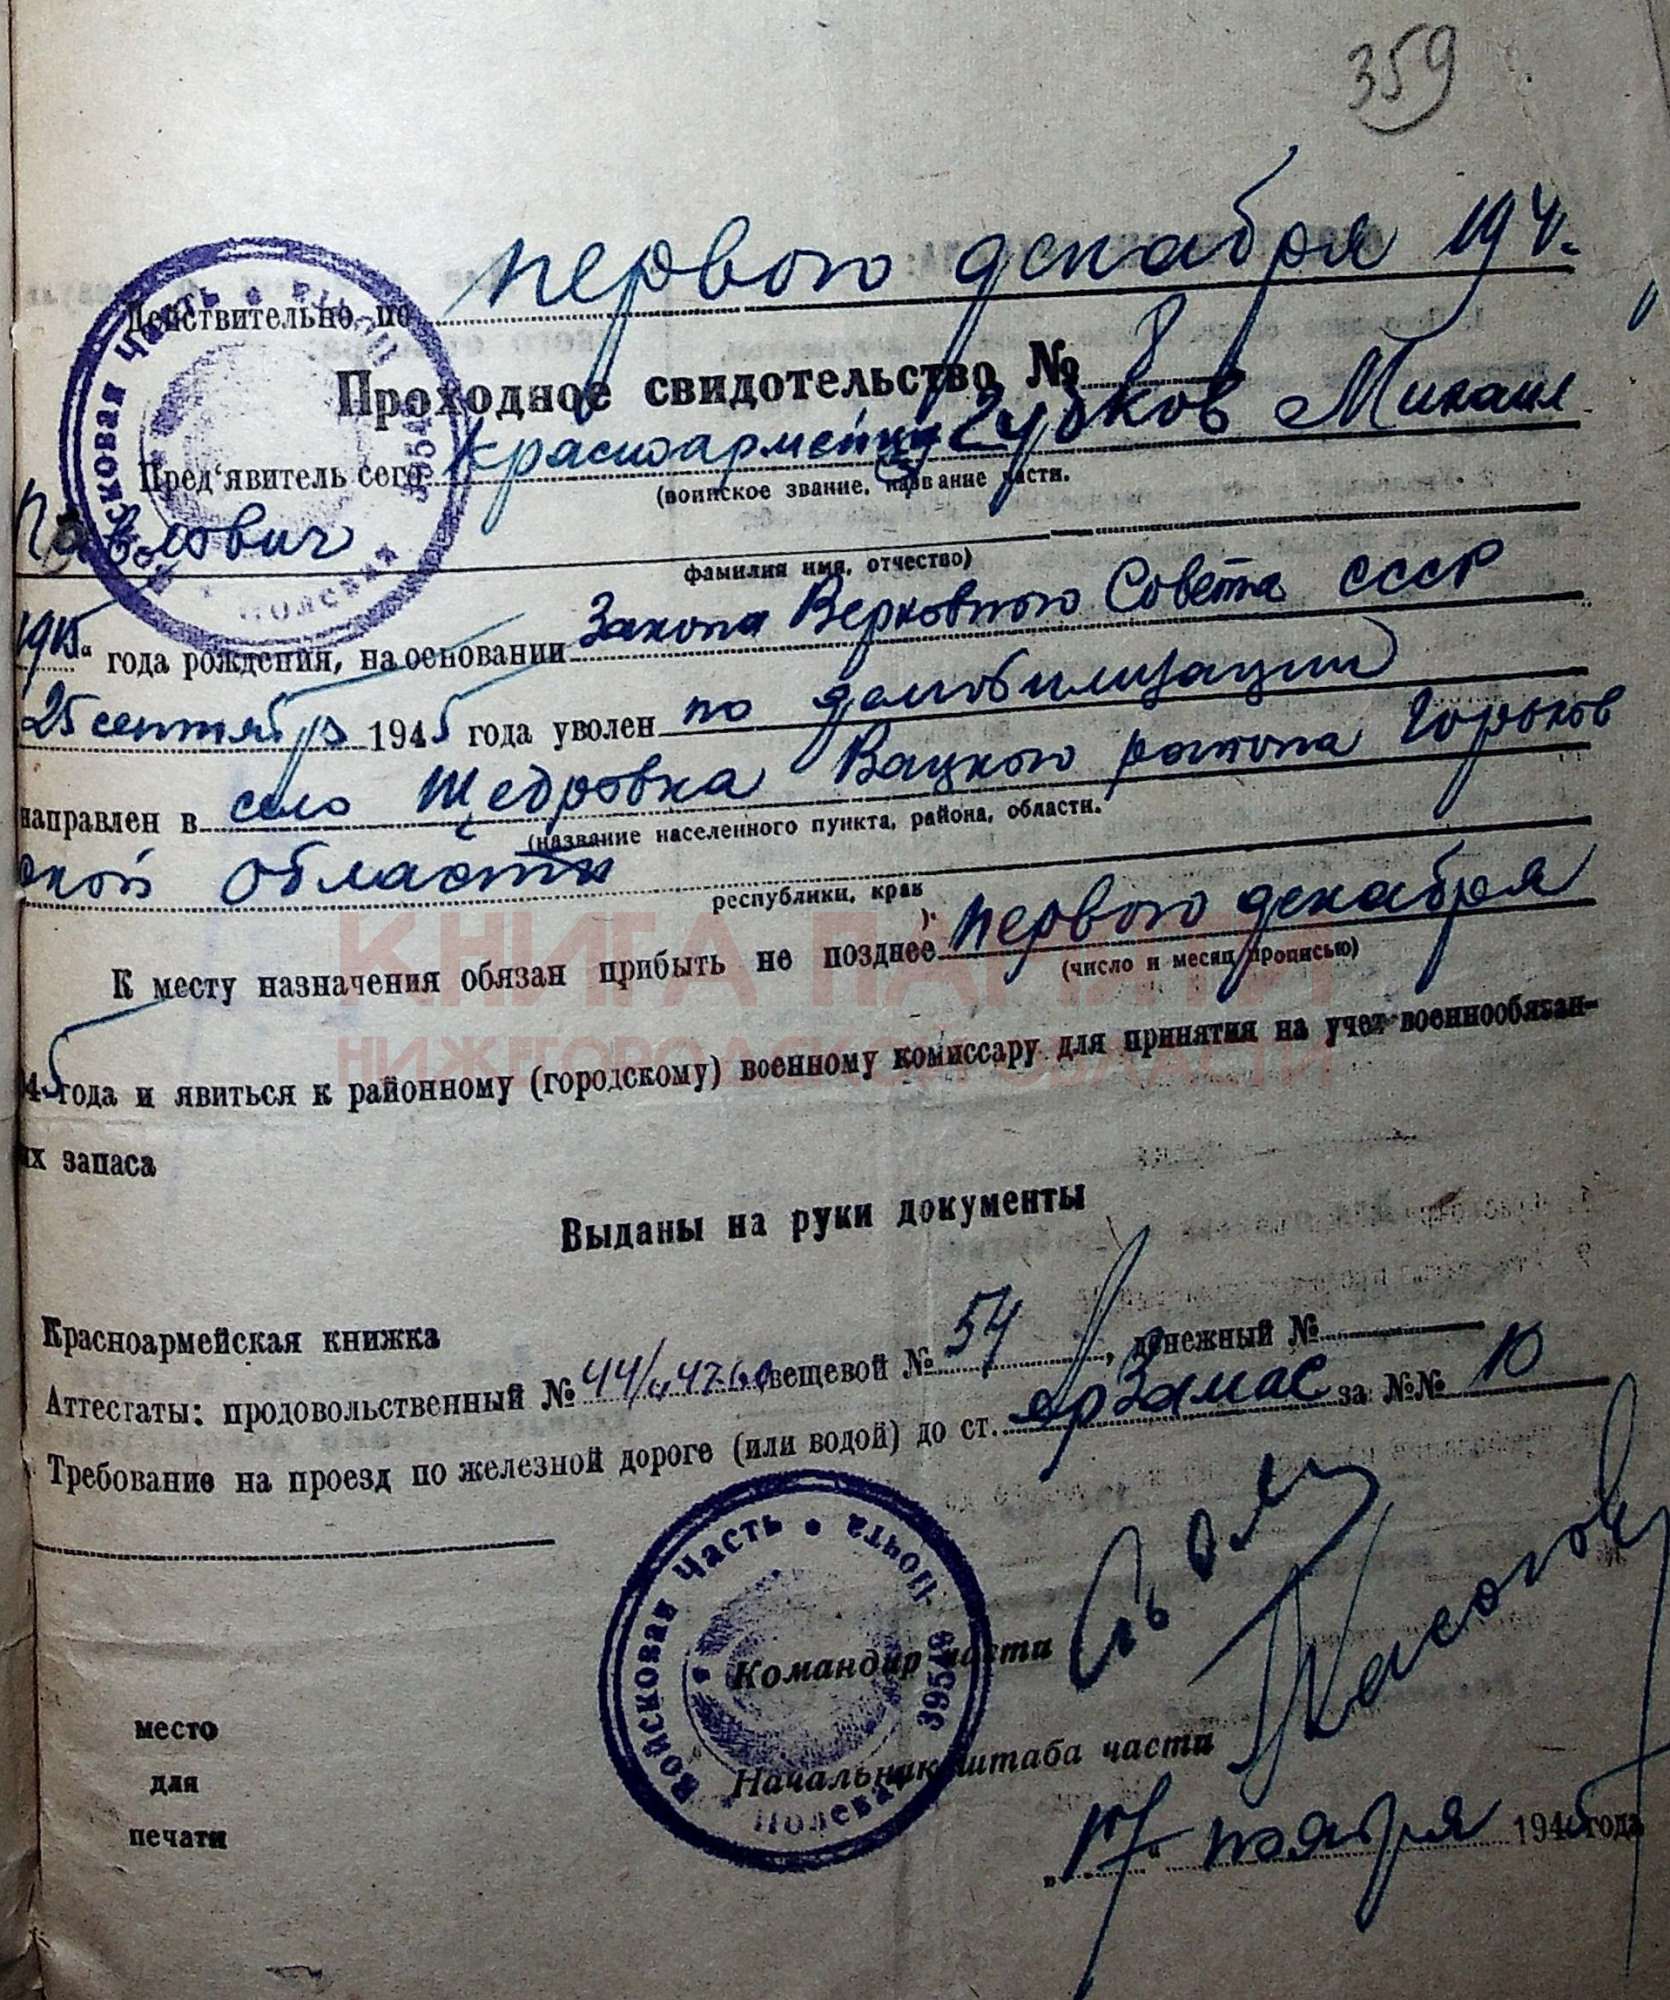 359
Действительно по первого декабря 194
Проходное свидотельство № 8
Пред'явитель сего красноармеец Зубков Михаил
(воинское звание, название части.
Павлович
фамилия имя, отчество)
1915 года рождения, на основании Закона Верховного Совета СССР
25 сентября 1945 года уволен по демобилизации
направлен в село Щедровка Вацкого района Горьков
(название населенного пункта, района, области.
ской области
республики, края
).
К месту назначения обязан прибыть не позднее первого декабря
(число и месяц прописью)
45 года и явиться к районному (городскому) военному комиссару для принятия на учет военнообязан-
ых запаса
Выданы на руки документы
Красноармейская книжка
Аттестаты: продовольственный № вещевой № 54, денежный №
Требование на проезд по железной дороге (или водой) до ст. Арзамас за №№ 10
Командир части
Начальник штаба части
место
для
печати
„17“ ноября 1945 года
Войсковая Часть • Полевая Почта 39549
КНИГА ПАМЯТИ
НИЖЕГОРОДСКОЙ ОБЛАСТИ